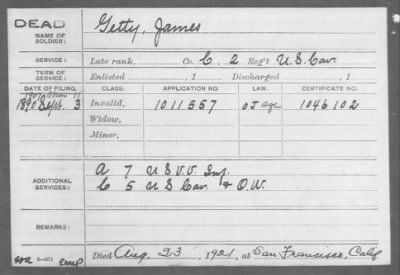 DEAD
NAME OF SOLDIER: Getty, James
SERVICE: Late rank, Co. C, 2 Reg't U.S. Cav.
TERM OF SERVICE: Enlisted , 1 Discharged , 1
DATE OF FILING. CLASS. APPLICATION NO. LAW. CERTIFICATE NO.
1890 Sept. 3 Invalid, 1011557 1046102
Widow,
Minor,
ADDITIONAL SERVICES: A 7 U.S.V.V. Inf.
C 5 U S Cav & O.W.
REMARKS:
Died Aug. 23, 1921, at San Francisco, Calif